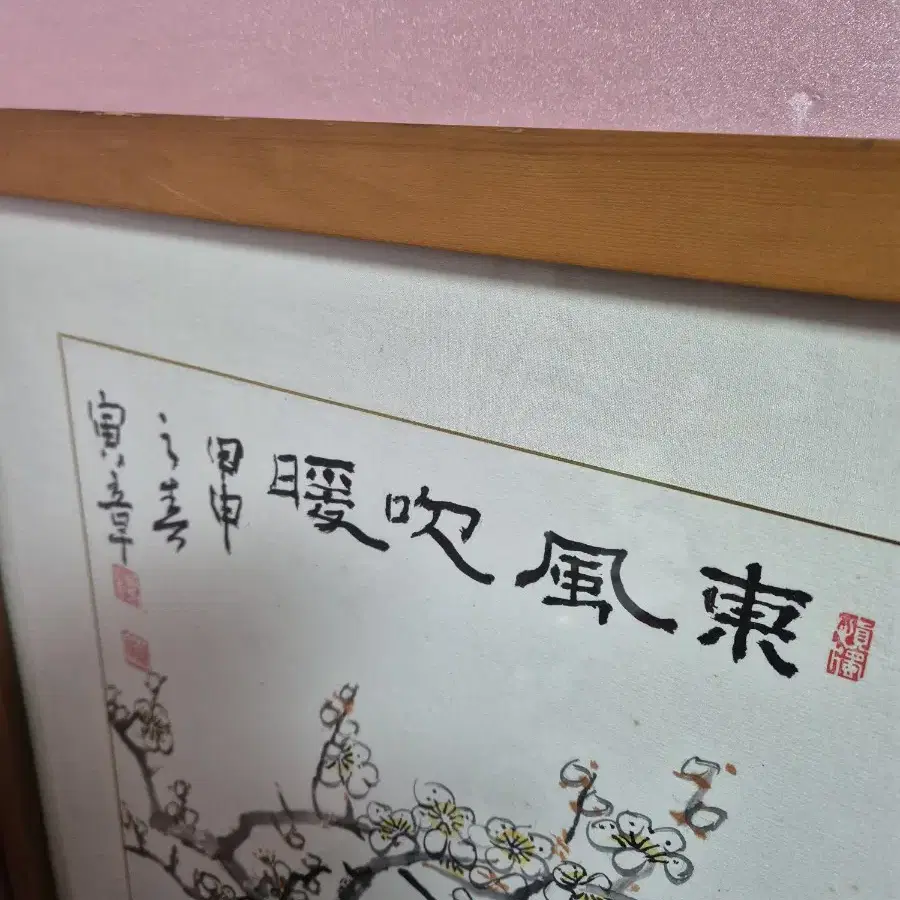 東風吹暖
甲申
之春
寅章